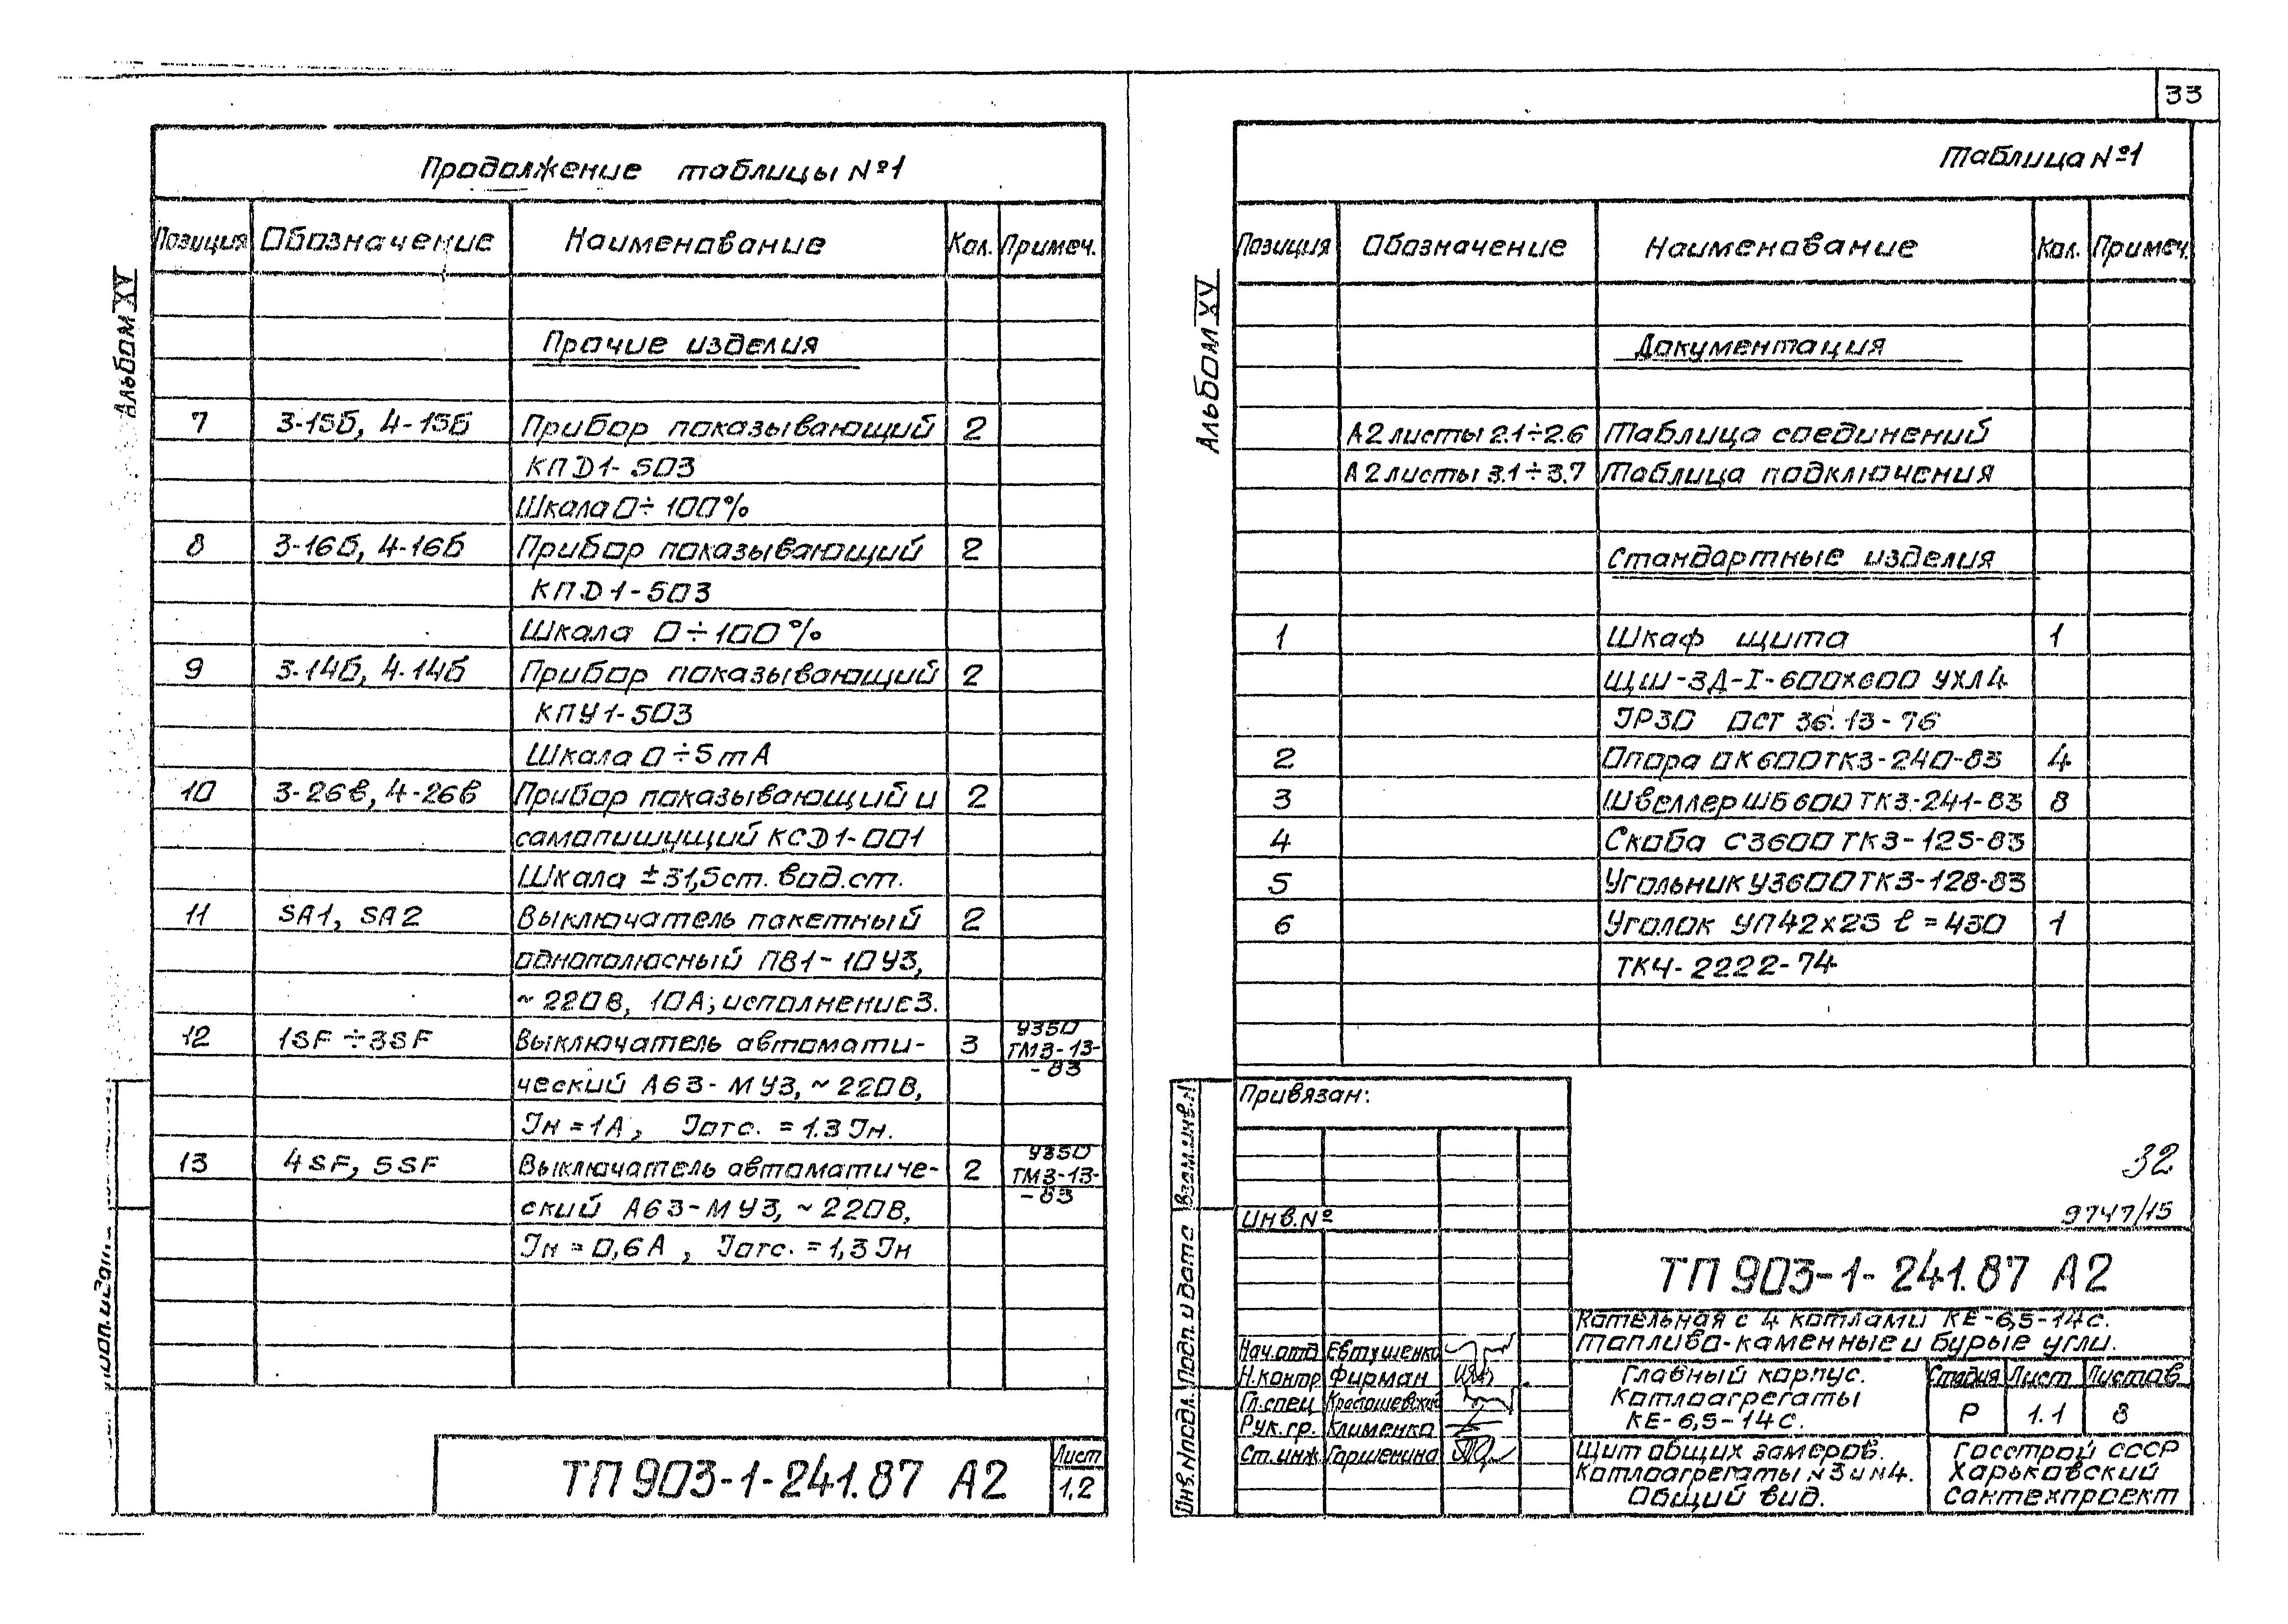 33
Продолжение таблицы №1
Позиция Обозначение Наименование Кол. Примеч.
Альбом XV
Прочие изделия
7 3-15б, 4-15б Прибор показывающий 2
КПД1-503
Шкала 0÷100%
8 3-16б, 4-16б Прибор показывающий 2
КПД1-503
Шкала 0÷100%
9 3-14б, 4-14б Прибор показывающий 2
КПУ1-503
Шкала 0÷5mA
10 3-26в, 4-26в Прибор показывающий и 2
самопишущий КСД1-001
Шкала ±31,5ст. вод.ст.
11 SA1, SA2 Выключатель пакетный 2
однополюсный ПВ1-10У3,
~220В, 10А; исполнение3.
12 1SF÷3SF Выключатель автомати- 3 У350
ТМ3-13-
-83
ческий А63-МУ3, ~220В,
Iн=1А, Iотс.=1.3Iн.
13 4SF, 5SF Выключатель автоматиче- 2 У350
ТМ3-13-
-83
ский А63-МУ3, ~220В,
Iн=0,6А, Iотс.=1,3Iн
ТП 903-1-241.87 А2
Лист
1.2
Таблица №1
Позиция Обозначение Наименование Кол. Примеч.
Альбом XV
Документация
А2 листы 2.1÷2.6 Таблица соединений
А2 листы 3.1÷3.7 Таблица подключения
Стандартные изделия
1 Шкаф щита 1
ЩШ-ЗД-I-600х600 УХЛ4
IP30 ОСТ 36.13-76
2 Опора ОК600ТК3-240-83 4
3 Швеллер ШБ600ТК3-241-83 8
4 Скоба С3600 ТК3-125-83
5 Угольник У3600ТК3-128-83
6 Уголок УП42х25 ℓ=430 1
ТК4-2222-74
Привязан:
Инв.№
Взам.инв.№
Подп. и дата
Инв.№подл.
32
9747/15
ТП 903-1-241.87 А2
Котельная с 4 котлами КЕ-6,5-14с.
Топливо-каменные и бурые угли.
Нач.отд Евтушенко
Н.контр Фирман
Гл.спец
Рук.гр. Клименко
Ст.инж. Горшенина
Главный корпус.
Котлоагрегаты
КЕ-6,5-14с.
Стадия Лист Листов
Р 1.1 8
Щит общих замеров.
Котлоагрегаты №3 и №4.
Общий вид.
Госстрой СССР
Харьковский
Сантехпроект